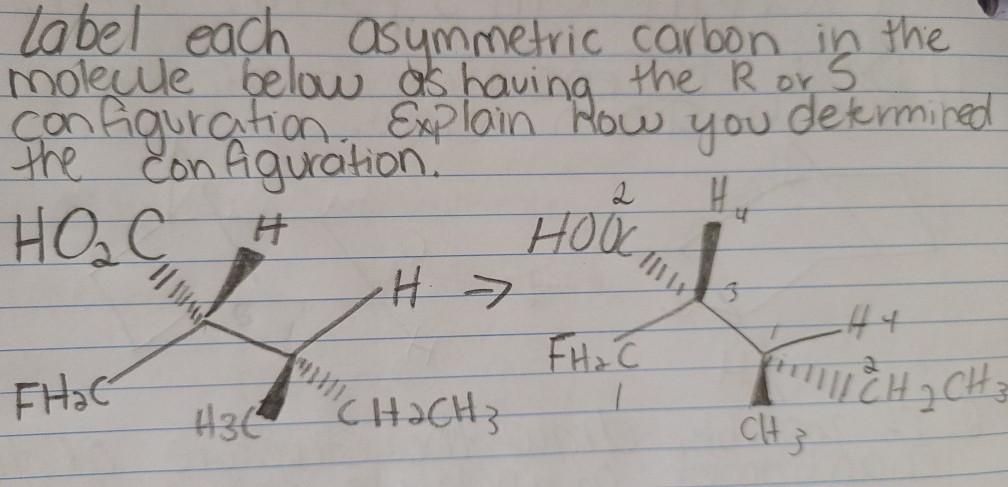 Label each asymmetric carbon in the
molecule below as having the R or S
configuration. Explain how you determined
the configuration.
HO2C H
H ⇒
FH2C
H3C CH2CH3
2 H 4
HOOC
3
1 H 4
FH2C 2 CH2CH3
1
CH3